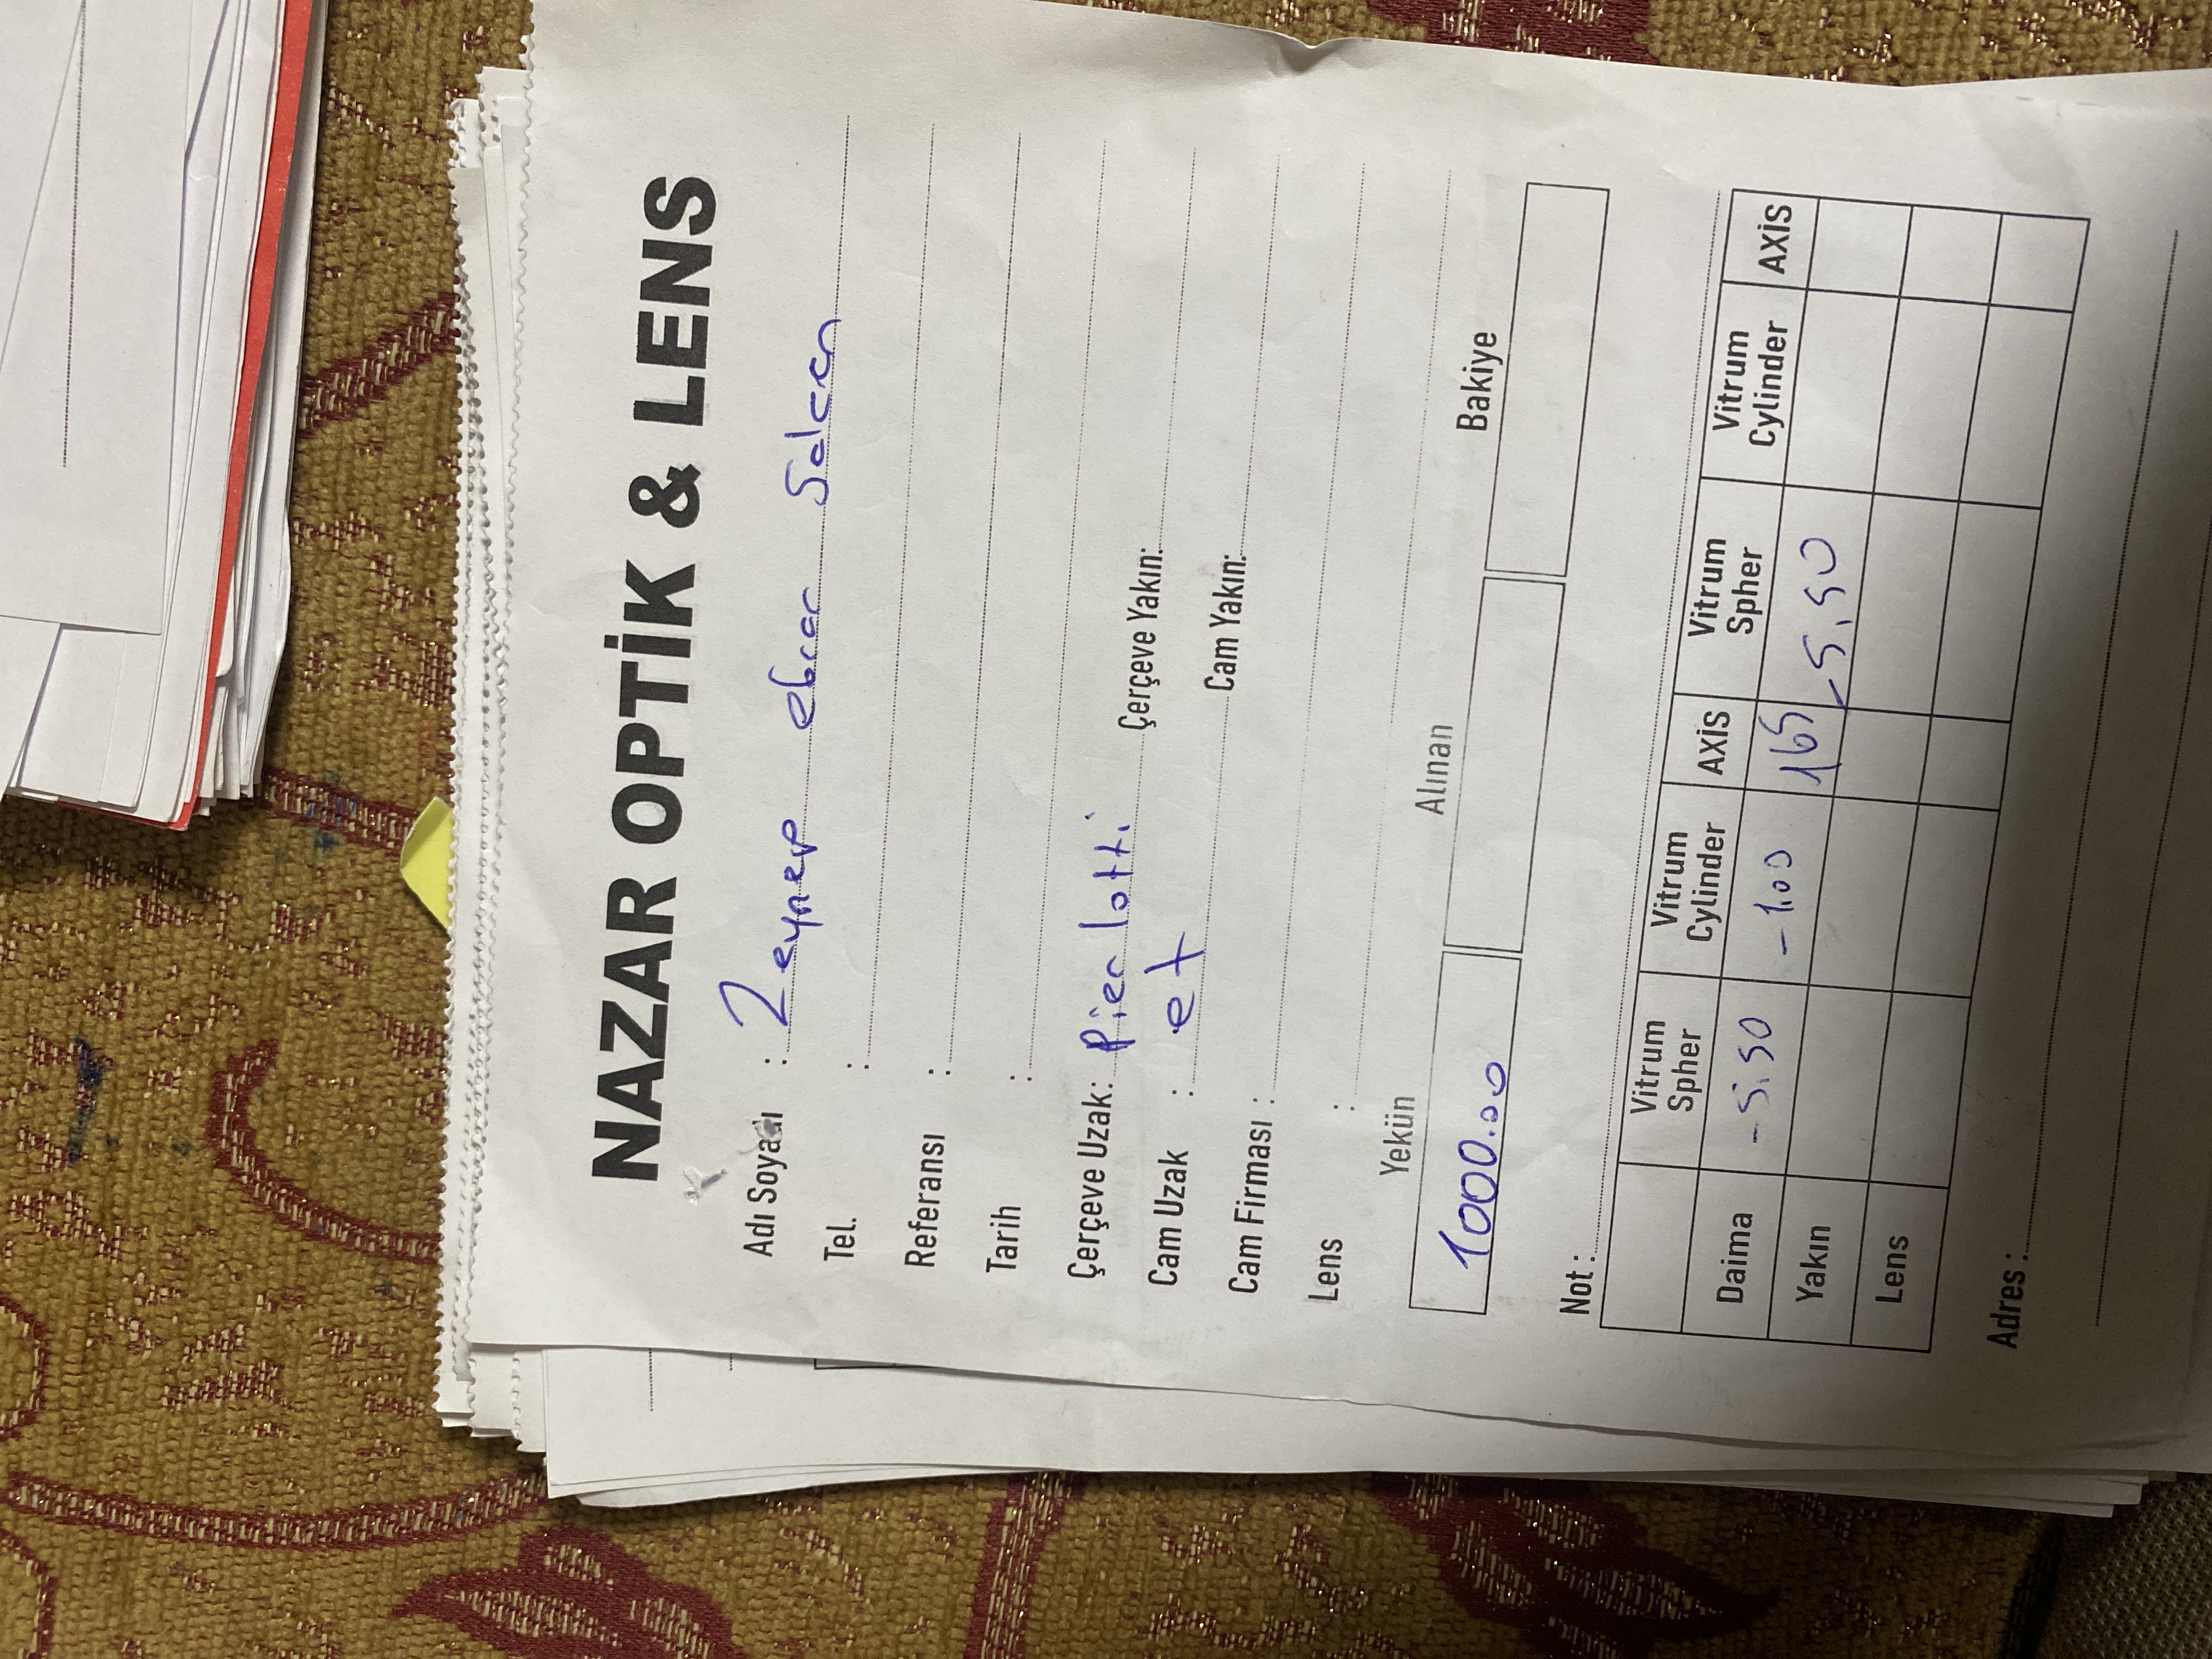 NAZAR OPTİK & LENS
Adı Soyadı : Zeynep ebrar
Tel. :
Referansı :
Tarih :
Çerçeve Uzak: Pier lotti Çerçeve Yakın:
Cam Uzak : et Cam Yakın:
Cam Firması :
Lens :
Yekün Alınan Bakiye
1000.00
Not :
Vitrum Spher Vitrum Cylinder AXİS Vitrum Spher Vitrum Cylinder AXİS
Daima -5.50 -1.00 165 -5,50
Yakın
Lens
Adres :